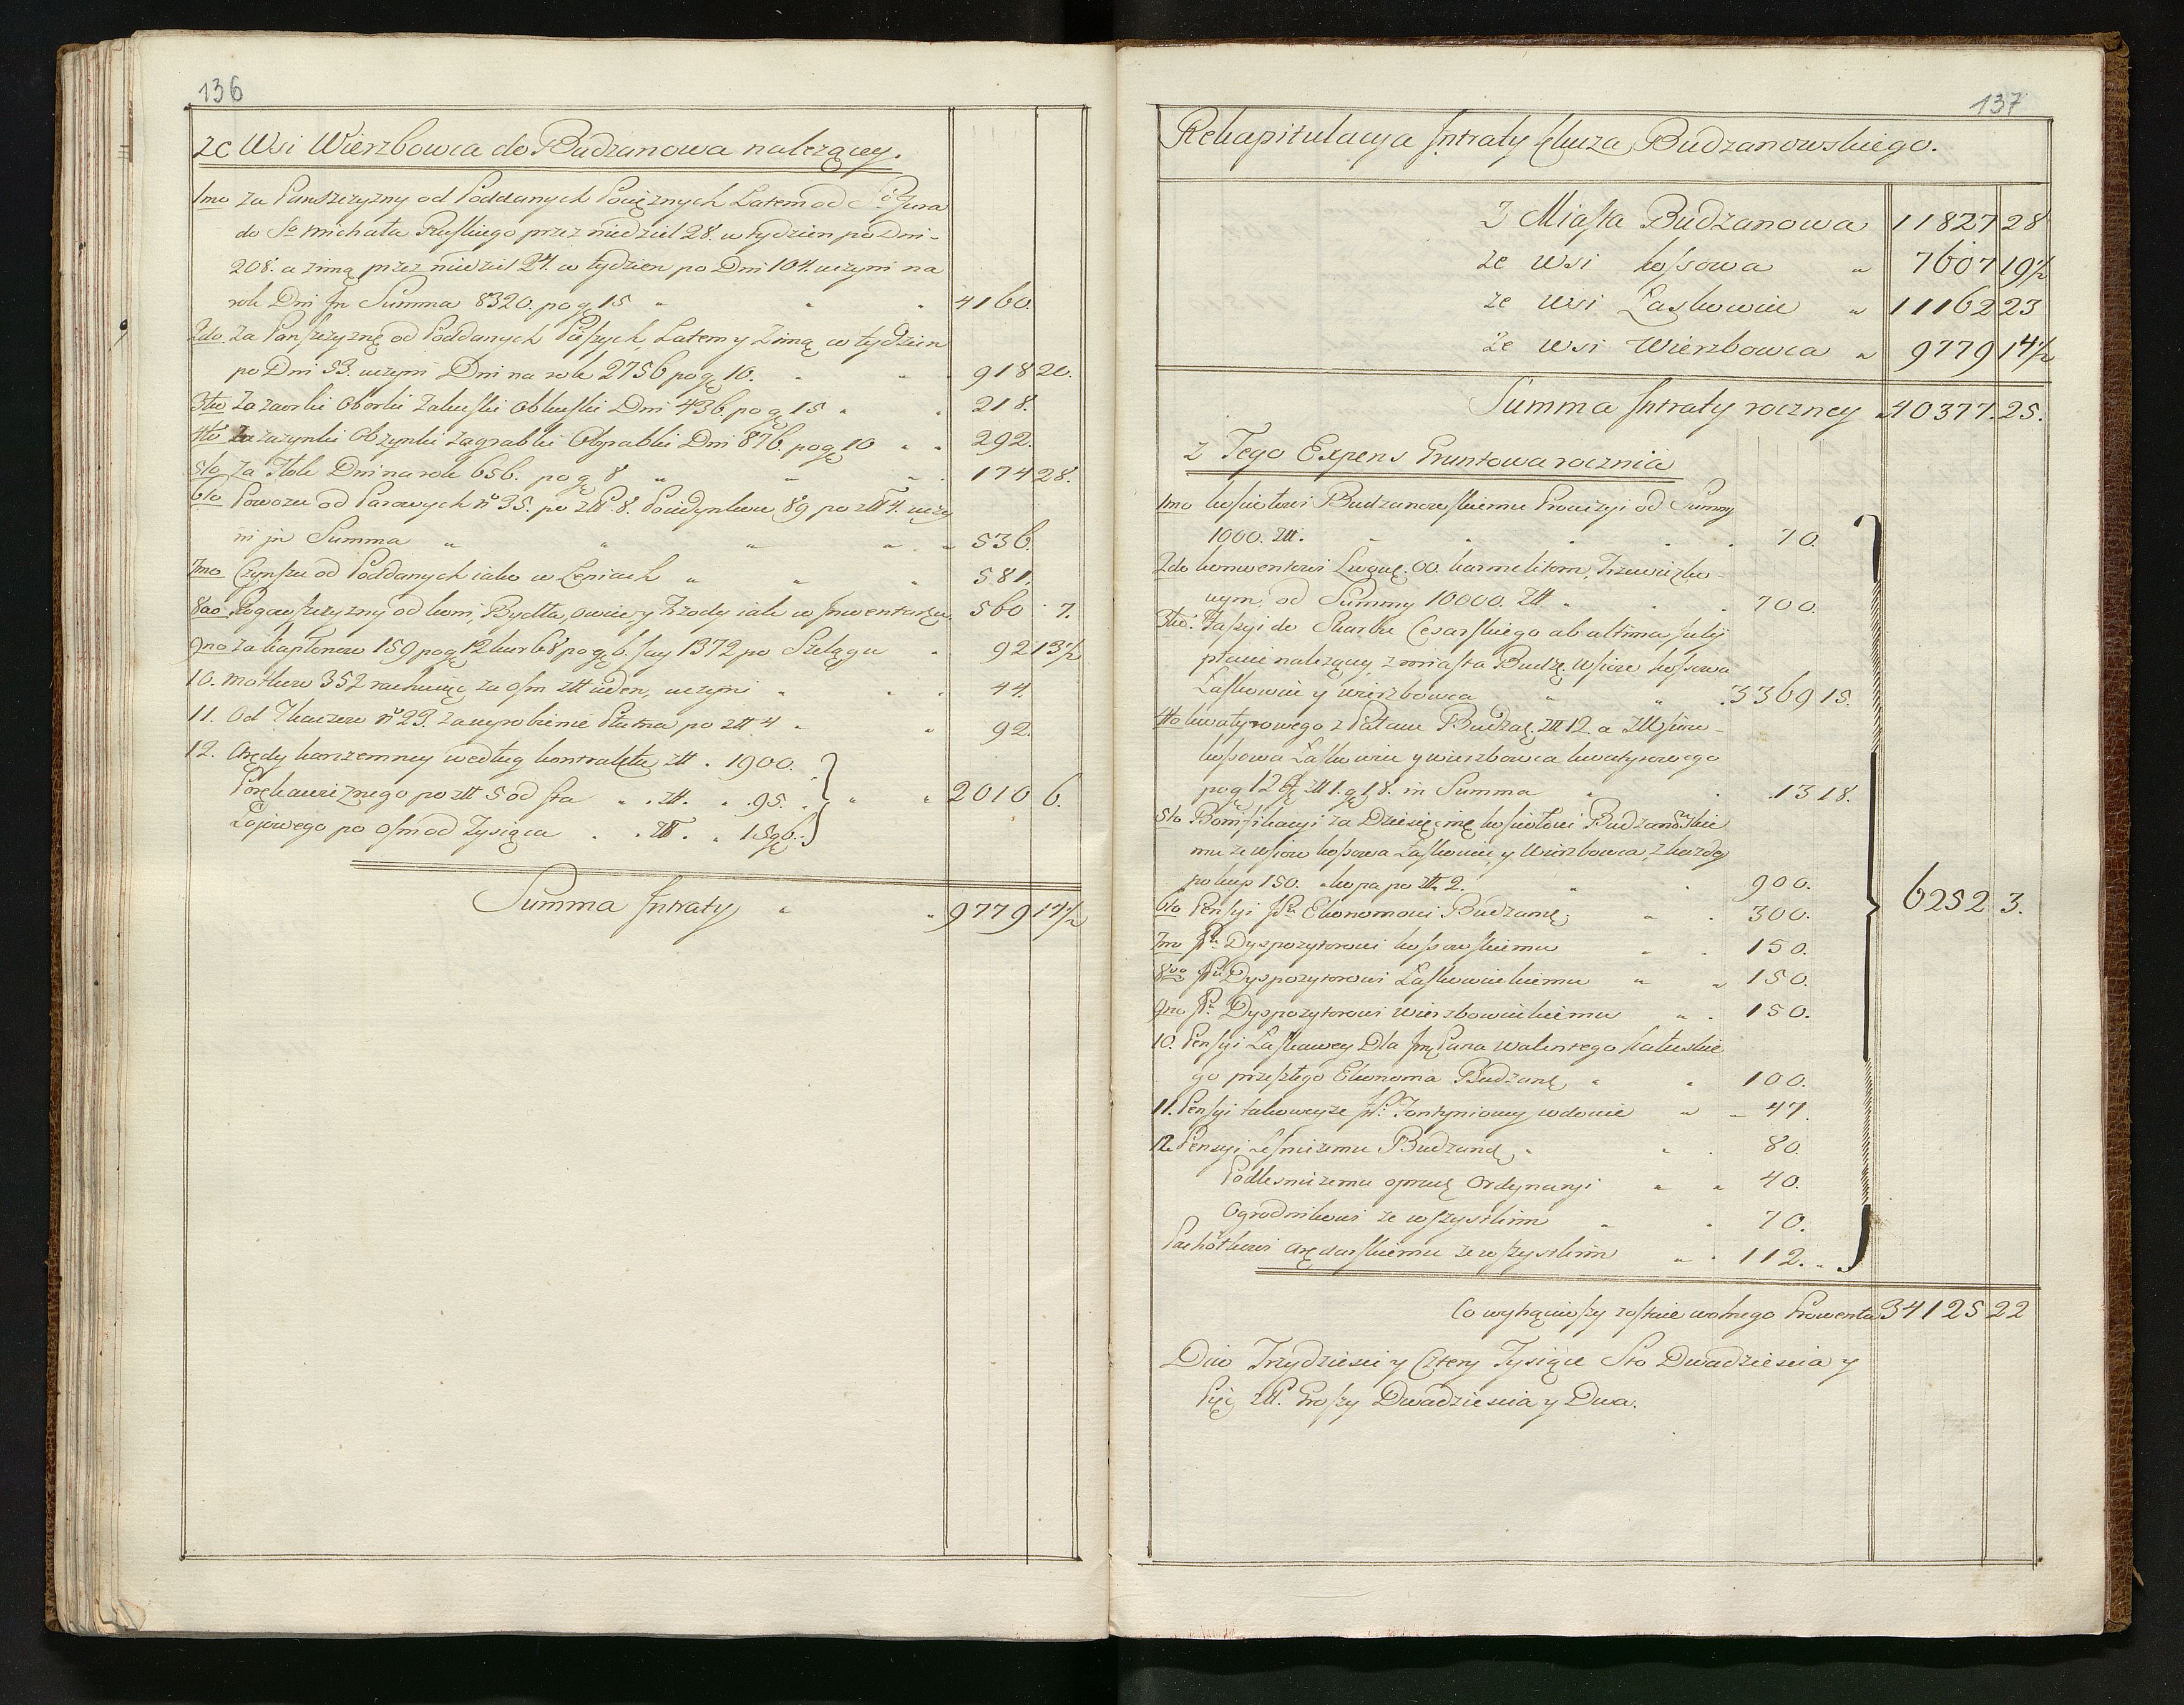 136
ze Wsi Wierzbowca do Budzanowa należącey.
1mo za Panszczyzny od Poddanych Pociężnych Latem od Sgo Jura
do Sgo Michała Ruskiego przez niedziel 28. w tydzien po Dni
208. a zimą przez niedziel 24. w tydzien po Dni 104. uczyni na
rok Dni in Summa 8320. po gę 15 " " " 4160.
2do Za Panszczyznę od Poddanych Pieszych Latem y Zimą w tydzien
po Dni 53. uczyni Dni na rok 2756 po gę 10. " " 918 20.
3tio Za zaorki Oborki Zakuski Obkuski Dni 436. po gę 15 " " 218.
4to Za zazynki Obzynki zagrabki Obgrabki Dni 876. po gę 10 " " 292.
5to Za Tłok Dni na rok 656. po gę 8 " " " 174 28.
6to Powozu od Parowych nº 35. po złł. 8. Poiedynkow 89 po złł 4. uczy
ni in Summa " " " " " 536.
7mo Czynszu od Poddanych iako w Cepiach " " " 581.
8vo Rogowszczyzny od koni, Bydła, owiec y Trzody iak w Inwentarzu 560 7.
9no za kapłonow 159 po gę 12 kur 68 po gę 6. Jay 1372 po Szelągu " 92 13½
10. Motkow 352 rachuiąc za osm złł ieden, uczyni " " 44.
11. Od Tkaczow nº 23. za wyrobienie Płutna po złł 4 " " 92.
12. Arędy karczemney według kontraktu złł. 1900.
Porękawicznego po złł 5 od sta " . złł. " 95. " " 2010 6.
Łojowego po osm od Tysiąca . . złł. " 15 gę 6.
Summa Intraty " " 9779 14½
137
Rekapitulacya Intraty Klucza Budzanowskiego.
z Miasta Budzanowa 11827 28
ze wsi kossowa " 7607 19½
ze wsi Laskowiec " 11162 23
ze wsi Wierzbowca " 9779 14½
Summa Intraty roczney 40377. 25.
z Tego Expens Gruntowa rocznia
1mo kosciołowi Budzanowskiemu Prowizyi od Summy
1000. złł. " " " " 70.
2do konwentowi OO. karmelitom, Trzewiczko-
wym, od Summy 10000. złł. " . . 700.
3tio. Rassyi do Skarbu Cesarskiego ab ultima July
płacić należącey, z miasta Budzę. wsiow kossowa
Laskowiec y wierzbowca " " .3369 15.
4to kwatyrowego z Pałacu Budzaę. złł 12 a z Wsiow
kossowa Laskowiec y wierzbowca kwatyrowego
po gę 12 złł 1. gę 18. in Summa " . .13 18.
5to Bonifikacyi za Dziesięcinę kosciołowi Budzanowskie
mu ze wsiow kossowa Laskowiec, y Wierzbowca, z kazdey
po kop 150. kopa po złł. 2. " . 900.
6to Pensyi JPu Ekonomowi Budzanę. " . 300. 6252 3.
7mo JPu Dyspozytorowi kossowskiemu " . 150.
8vo JPu Dyspozytorowi Laskowieckiemu " " 150.
9no JPu Dyspozytorowi wierzbowieckiemu " . 150.
10. Pensyi Laskawey Dla Jmę Pana Walentego kałuskie
go przeszłego Ekonoma Budzanę " " 100.
11. Pensyi takowey ze JP. wdowie " " 47.
12. Pensyi Leśniczemu Budzanę, " " . 80.
Podlesniczemu oprucz Ordynaryi " " 40.
Ogrodnikowi ze wszystkim " . 70.
Pachołkowi Arędarskiemu ze wszystkim " . 112. "
Co wytrąciwszy zostaie wolnego Prowentu 34125 22
Dico Trzydziesci y Cztery Tysiące Sto Dwadziescia y
Pięć złł. Groszy Dwadziescia y Dwa.